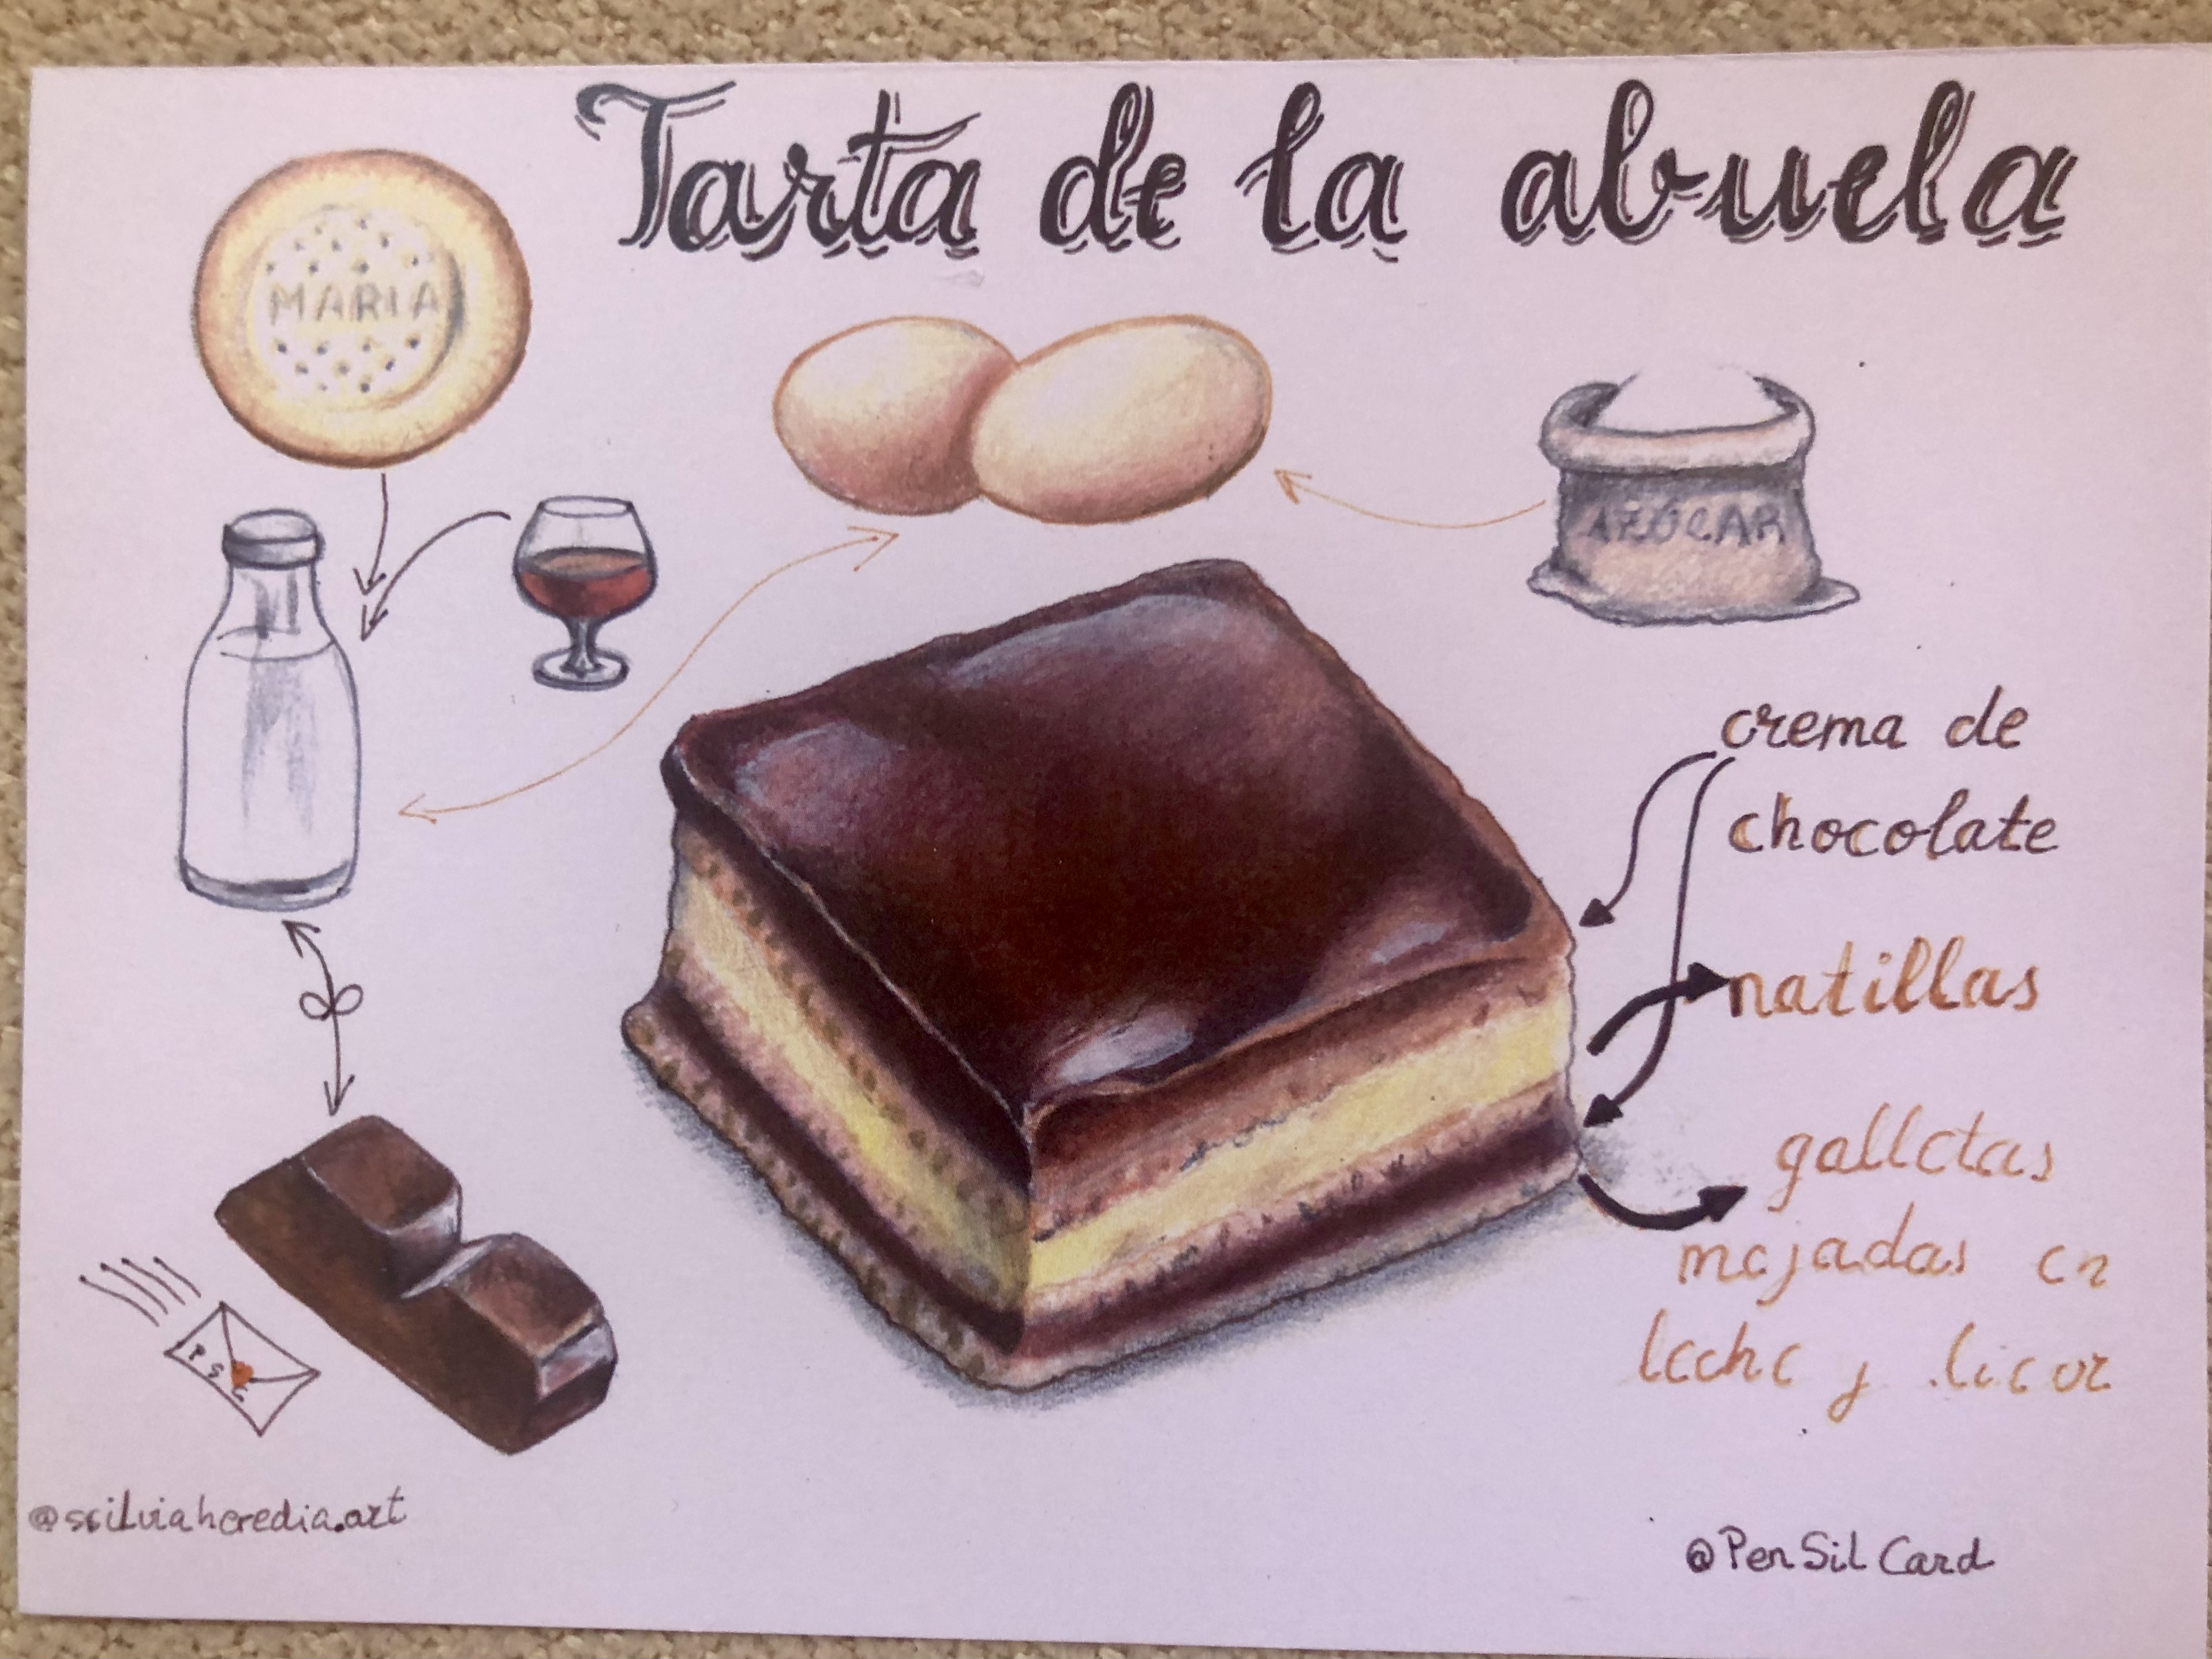 Tarta de la abuela
MARIA
AZÚCAR
crema de
chocolate
natillas
galletas
mojadas en
leche y licor
P S C
@ssilviaheredia.art
@PenSilCard